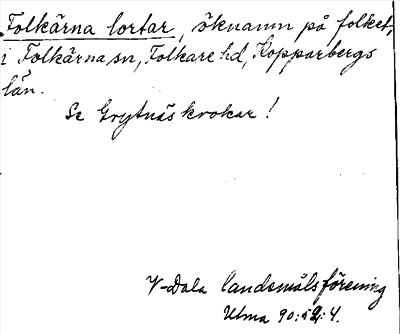 Folkärna lortar, öknamn på folket,
i Folkärna sn, Folkare hd, Kopparbergs
län.
Se Grytnäs krokar!
V-Dala landsmålsförening
Ulma 90:52:4.